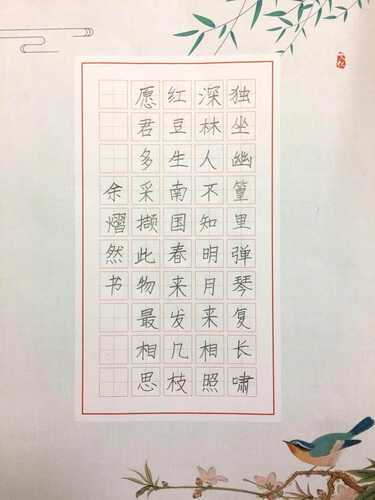 独坐幽篁里弹琴复长啸
深林人不知明月来相照
红豆生南国春来发几枝
愿君多采撷此物最相思
余熠然书